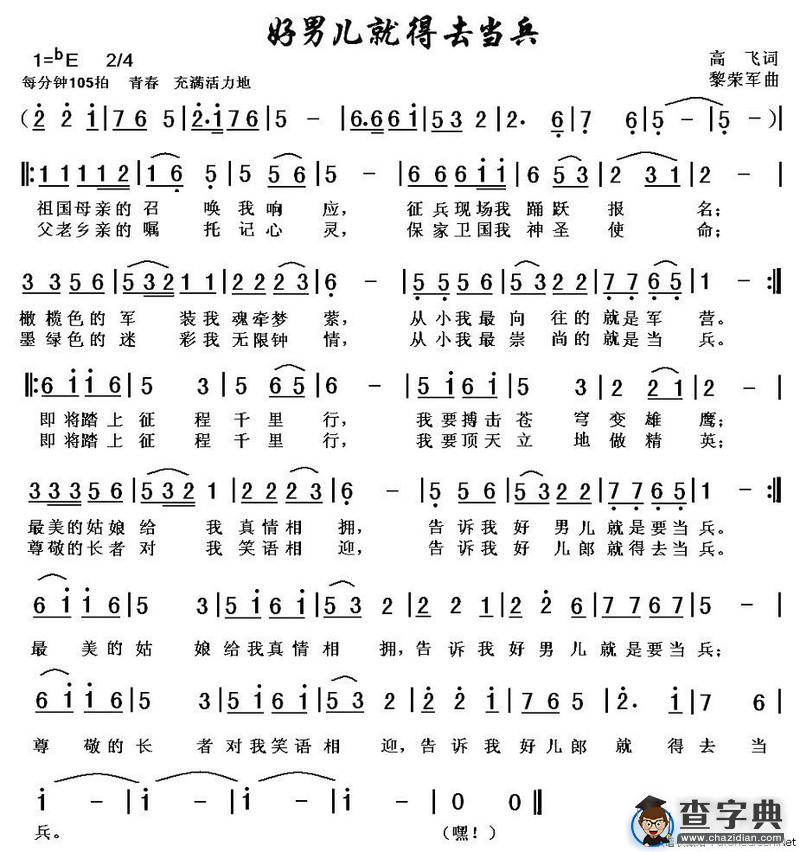 好男儿就得去当兵
1=bE 2/4
高 飞词
每分钟105拍 青春 充满活力地
黎荣军曲
(2 2 i|7 6 5|2·i 7 6|5 -|6·6 6 i|5 3 2|2· 6|7 6|5 -|5 -)|
‖:1 1 1 1 2|1 6 5|5 5 6|5 -|6 6 6 i i|5 5 3|2 3 1|2 -|
祖国母亲的召 唤我响 应, 征兵现场我踊跃 报 名;
父老乡亲的嘱 托记心 灵, 保家卫国我神圣 使 命;
3 3 5 6|5 3 2 1 1|2 2 2 3|6 -|5 5 5 6|5 3 2 2|7 7 6 5|1 -:‖
橄榄色的军 装我魂牵梦 萦, 从小我最向 往的就是军 营。
墨绿色的迷 彩我无限钟 情, 从小我最崇 尚的就是当 兵。
‖:6 i i 6|5 3|5 6 5|6 -|5 i 6 i|5 3|2 2 1|2 -|
即将踏上征 程千里 行, 我要搏击苍 穹变雄 鹰;
即将踏上征 程千里 行, 我要顶天立 地做精 英;
3 3 3 5 6|5 3 2 1|2 2 2 3|6 -|5 5 5 6|5 3 2 2|7 7 6 5|1 -:‖
最美的姑娘给 我真情相 拥, 告诉我好 男儿就是要当兵。
尊敬的长者对 我笑语相 迎, 告诉我好 儿郎就得去当兵。
6 i i 6|5 3|5 i 6 i|5 3 2|2 2 1|2 2 6|7 7 6 7|5 -|
最 美的姑 娘给我真情相 拥,告诉我好男儿就是要当兵;
6 i i 6|5 3|5 5 i 6 i|5 3 2|2 2 i|7 6 5|2· 2|i 7 6|
尊 敬的长 者对我笑语相 迎,告诉我好儿郎 就 得去 当
i -|i -|i -|0 0‖
兵。 (嘿!)
查字典
www.chazidian.com